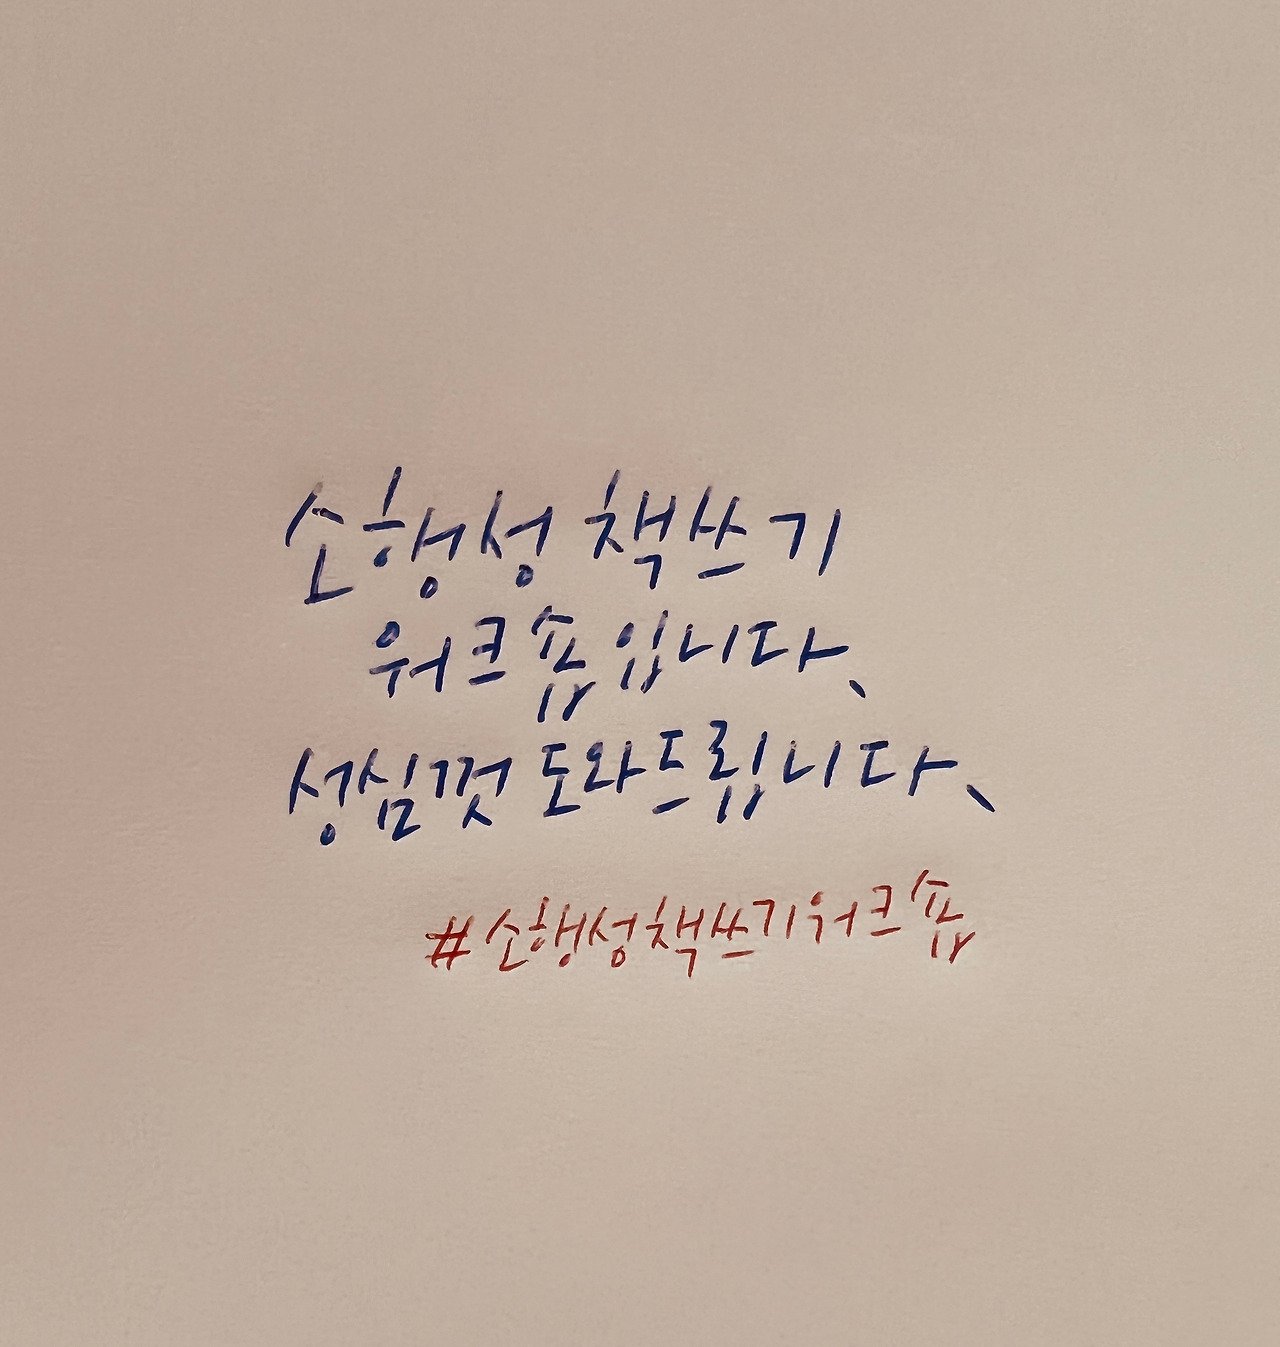 소행성 책쓰기
워크숍입니다.
성심껏 도와드립니다.
#소행성책쓰기워크숍